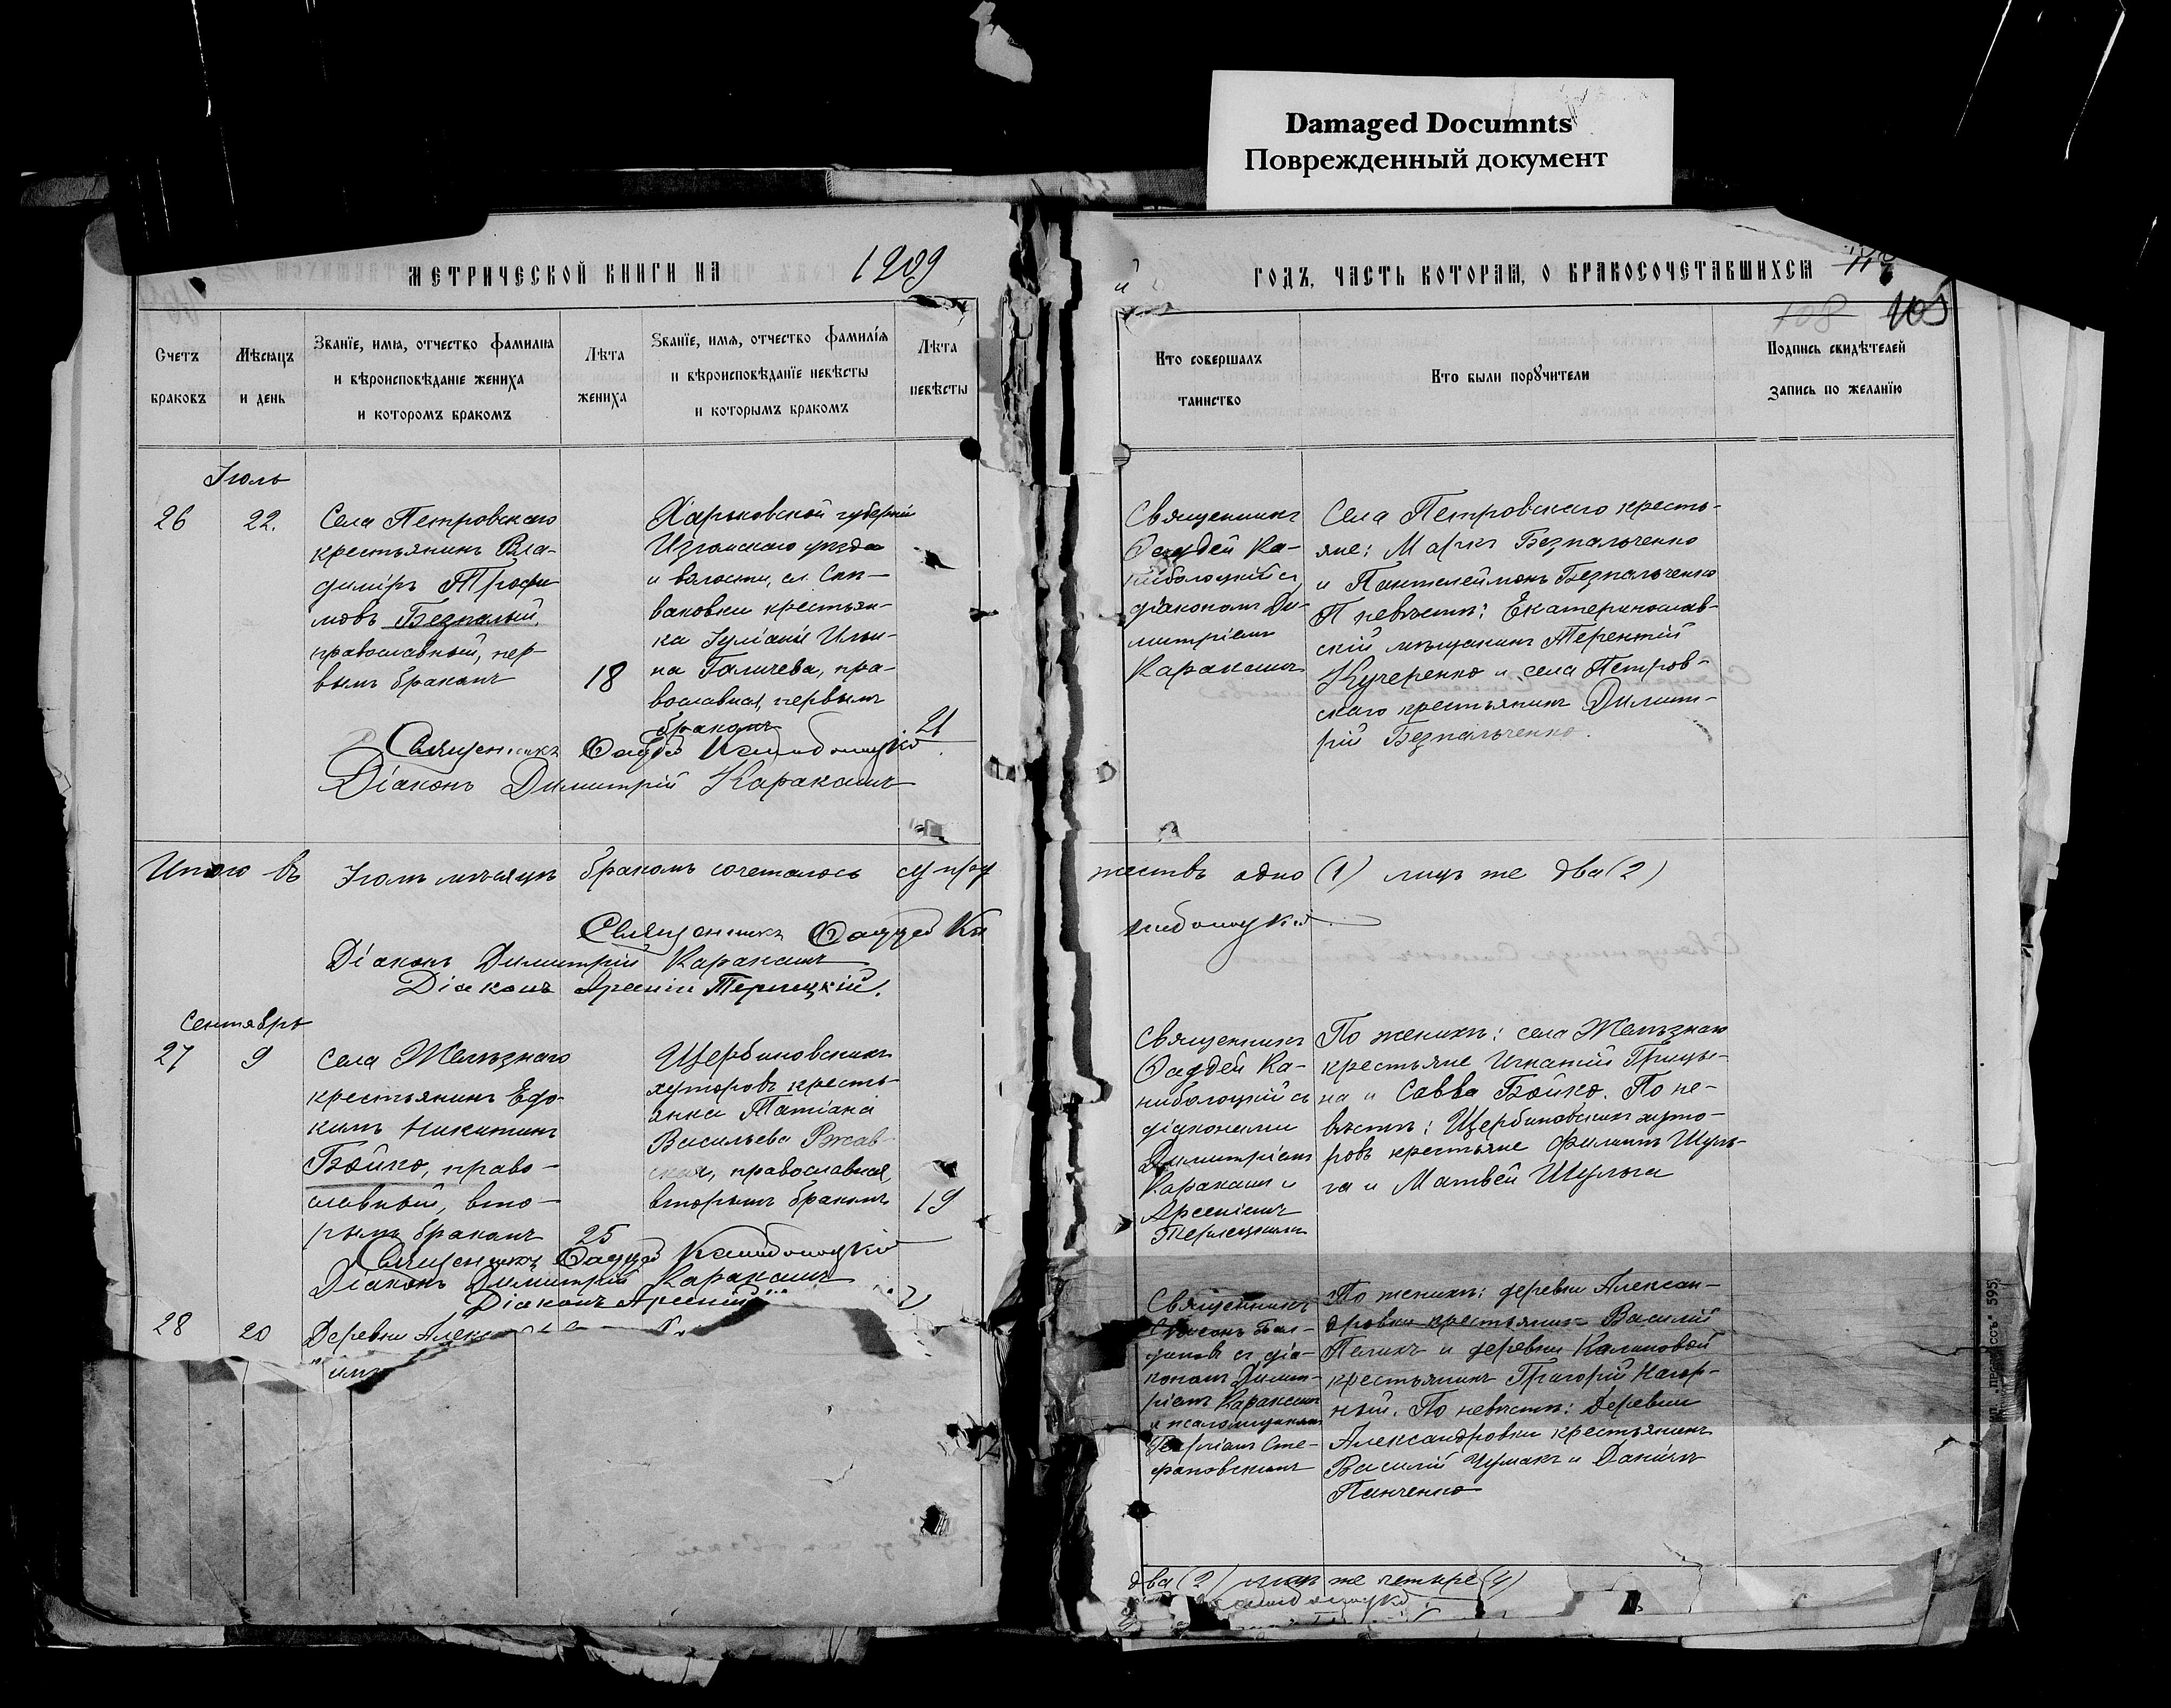 Damaged Documnts
Поврежденный документ
МЕТРИЧЕСКОЙ КНИГИ НА 1909
ГОДЪ, ЧАСТЬ КОТОРАЯ, О БРАКОСОЧЕТАВШИХСЯ
108 105
Счетъ браковъ
Мѣсяцъ и день
Званїе, имя, отчество фамилїя
и вѣроисповѣданїе жениха
и которомъ бракомъ
Лѣта жениха
Званїе, имя, отчество фамилїя
и вѣроисповѣданїе невѣсты
и которымъ бракомъ
Лѣта невѣсты
Кто совершалъ таинство
Кто были поручители
Подпись свидѣтелей
запись по желанїю
Іюль
26
22.
Села Петровскаго
крестьянинъ Вла-
диміръ Трофи
мовъ Безпалый,
православный, пер-
вымъ бракомъ
18
Харьковской губерніи
Изюмскаго уѣзда
и волости, сл.
ваковки крестьян-
ка Іуліанія Ильи-
на Галичева, пра-
вославная, первымъ
бракомъ
21
Священникъ
Ѳаддей Ка-
ниболоцкій съ
діакономъ Ди-
митріемъ
Каракашъ
Села Петровскаго кресть-
яне: Маркъ Безпальченко
и Пантелеймонъ Безпальченко
П невѣстѣ: Екатеринослав-
скій мѣщанинъ Терентій
Кучеренко и села Петров-
скаго крестьянинъ Димит-
рій Безпальченко.
Священникъ Ѳаддей Каниболоцкій
Діаконъ Димитрій Каракашъ
Итого въ Іюлѣ мѣсяцѣ бракомъ сочеталось супру
жествъ одно (1) лицъ же два (2)
Священникъ Ѳаддей Ка
ниболоцкій
Діаконъ Димитрій Каракашъ
Діаконъ Арсеній Терлецкій.
Сентябрь
27
9
Села Желѣзнаго
крестьянинъ Евдо-
кимъ Никитинъ
Бойко, право-
славный, вто-
рымъ бракомъ
25
Щербиновскихъ
хуторовъ кресть-
янка Татіана
Васильева Ржав-
ская, православная,
вторымъ бракомъ
19
Священникъ
Ѳаддей Ка-
ниболоцкій съ
діаконами
Димитріемъ
Каракашъ и
Арсеніемъ
Терлецкимъ
По женихѣ: села Желѣзнаго
крестьяне Игнатій Грицы-
на и Савва Бойко. По не-
вѣстѣ: Щербиновскихъ хуто-
ровъ крестьяне Филиппъ Шуль-
га и Матвей Шульга
Священникъ Ѳаддей Каниболоцкій
Діаконъ Димитрій Каракашъ
Діаконъ Арсеній
28
20
Деревни Алекс
Священникъ
Симеонъ
съ діа-
кономъ Димит-
ріемъ Каракашъ
и псаломщикомъ
Георгіемъ Сте-
фановскимъ
По женихѣ: деревни Алексан-
дровки крестьянинъ Василій
и деревни Калиновой
крестьянинъ Григорій Нагор-
ный. По невѣстѣ: Деревни
Александровки крестьянинъ
Василій Чумакъ и Даніилъ
Панченко
два (2) лицъ же четыре (4)